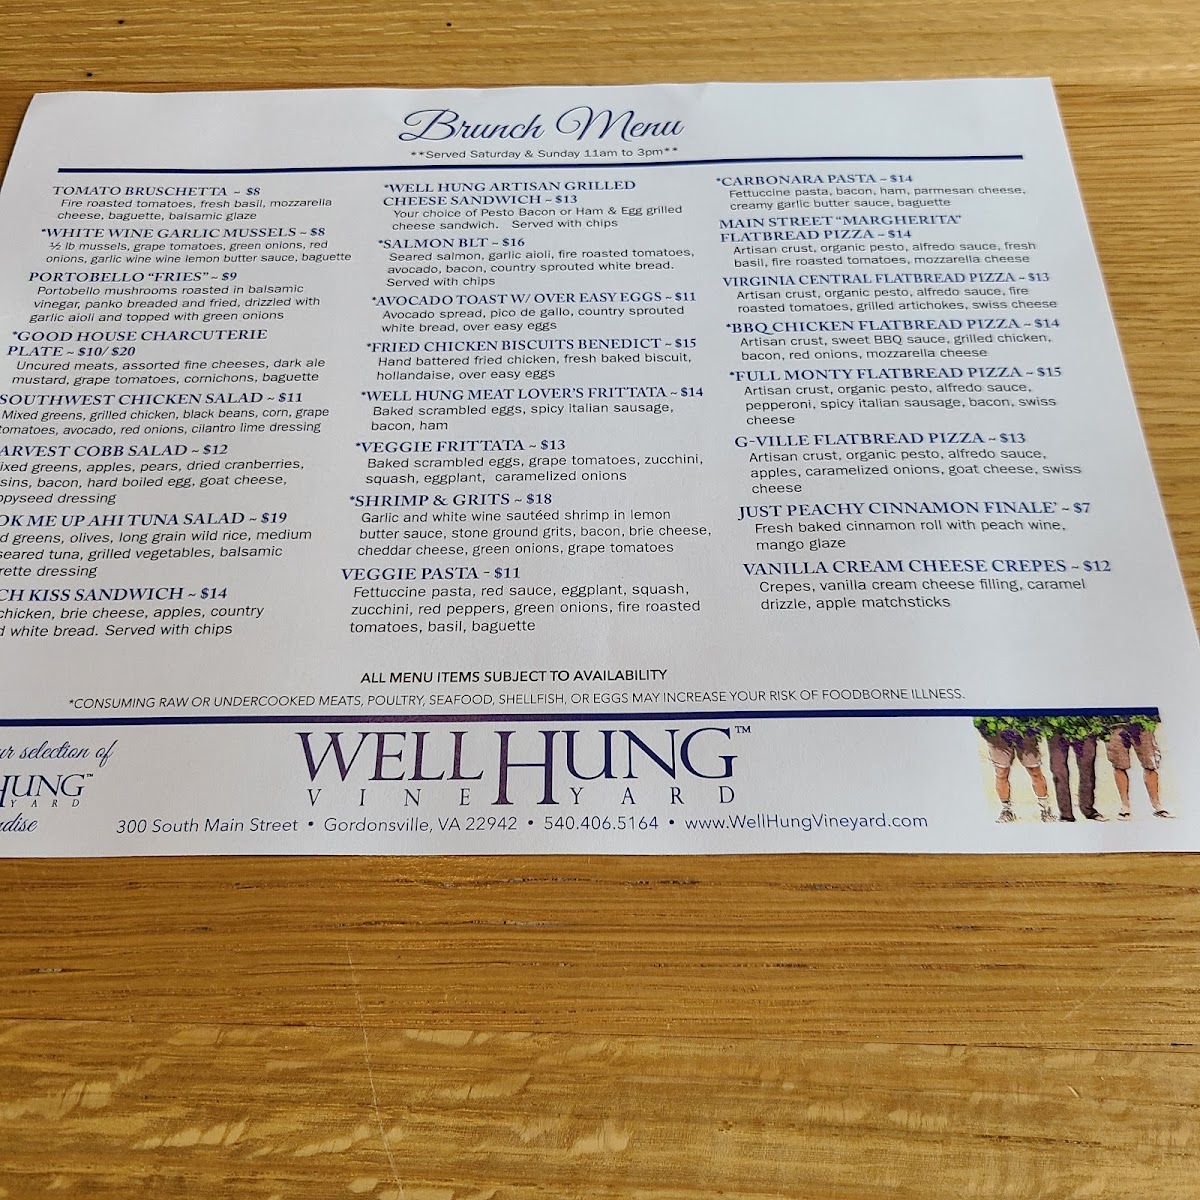 Brunch Menu
**Served Saturday & Sunday 11am to 3pm**
TOMATO BRUSCHETTA ~ $8
Fire roasted tomatoes, fresh basil, mozzarella
cheese, baguette, balsamic glaze
*WHITE WINE GARLIC MUSSELS ~ $8
½ lb mussels, grape tomatoes, green onions, red
onions, garlic wine wine lemon butter sauce, baguette
PORTOBELLO "FRIES" ~ $9
Portobello mushrooms roasted in balsamic
vinegar, panko breaded and fried, drizzled with
garlic aioli and topped with green onions
*GOOD HOUSE CHARCUTERIE
PLATE ~ $10/ $20
Uncured meats, assorted fine cheeses, dark ale
mustard, grape tomatoes, cornichons, baguette
SOUTHWEST CHICKEN SALAD ~ $11
Mixed greens, grilled chicken, black beans, corn, grape
tomatoes, avocado, red onions, cilantro lime dressing
ARVEST COBB SALAD ~ $12
ixed greens, apples, pears, dried cranberries,
sins, bacon, hard boiled egg, goat cheese,
ppyseed dressing
OK ME UP AHI TUNA SALAD ~ $19
d greens, olives, long grain wild rice, medium
seared tuna, grilled vegetables, balsamic
rette dressing
CH KISS SANDWICH ~ $14
chicken, brie cheese, apples, country
d white bread. Served with chips
*WELL HUNG ARTISAN GRILLED
CHEESE SANDWICH ~ $13
Your choice of Pesto Bacon or Ham & Egg grilled
cheese sandwich. Served with chips
*SALMON BLT ~ $16
Seared salmon, garlic aioli, fire roasted tomatoes,
avocado, bacon, country sprouted white bread.
Served with chips
*AVOCADO TOAST W/ OVER EASY EGGS ~ $11
Avocado spread, pico de gallo, country sprouted
white bread, over easy eggs
*FRIED CHICKEN BISCUITS BENEDICT ~ $15
Hand battered fried chicken, fresh baked biscuit,
hollandaise, over easy eggs
*WELL HUNG MEAT LOVER'S FRITTATA ~ $14
Baked scrambled eggs, spicy italian sausage,
bacon, ham
*VEGGIE FRITTATA ~ $13
Baked scrambled eggs, grape tomatoes, zucchini,
squash, eggplant, caramelized onions
*SHRIMP & GRITS ~ $18
Garlic and white wine sautéed shrimp in lemon
butter sauce, stone ground grits, bacon, brie cheese,
cheddar cheese, green onions, grape tomatoes
VEGGIE PASTA - $11
Fettuccine pasta, red sauce, eggplant, squash,
zucchini, red peppers, green onions, fire roasted
tomatoes, basil, baguette
*CARBONARA PASTA ~ $14
Fettuccine pasta, bacon, ham, parmesan cheese,
creamy garlic butter sauce, baguette
MAIN STREET "MARGHERITA"
FLATBREAD PIZZA ~ $14
Artisan crust, organic pesto, alfredo sauce, fresh
basil, fire roasted tomatoes, mozzarella cheese
VIRGINIA CENTRAL FLATBREAD PIZZA ~ $13
Artisan crust, organic pesto, alfredo sauce, fire
roasted tomatoes, grilled artichokes, swiss cheese
*BBQ CHICKEN FLATBREAD PIZZA ~ $14
Artisan crust, sweet BBQ sauce, grilled chicken,
bacon, red onions, mozzarella cheese
*FULL MONTY FLATBREAD PIZZA ~ $15
Artisan crust, organic pesto, alfredo sauce,
pepperoni, spicy italian sausage, bacon, swiss
cheese
G-VILLE FLATBREAD PIZZA ~ $13
Artisan crust, organic pesto, alfredo sauce,
apples, caramelized onions, goat cheese, swiss
cheese
JUST PEACHY CINNAMON FINALE' ~ $7
Fresh baked cinnamon roll with peach wine,
mango glaze
VANILLA CREAM CHEESE CREPES ~ $12
Crepes, vanilla cream cheese filling, caramel
drizzle, apple matchsticks
ALL MENU ITEMS SUBJECT TO AVAILABILITY
*CONSUMING RAW OR UNDERCOOKED MEATS, POULTRY, SEAFOOD, SHELLFISH, OR EGGS MAY INCREASE YOUR RISK OF FOODBORNE ILLNESS.
ur selection of
HUNG™
YARD
adise
WELL HUNG™
VINEYARD
300 South Main Street • Gordonsville, VA 22942 • 540.406.5164 • www.WellHungVineyard.com